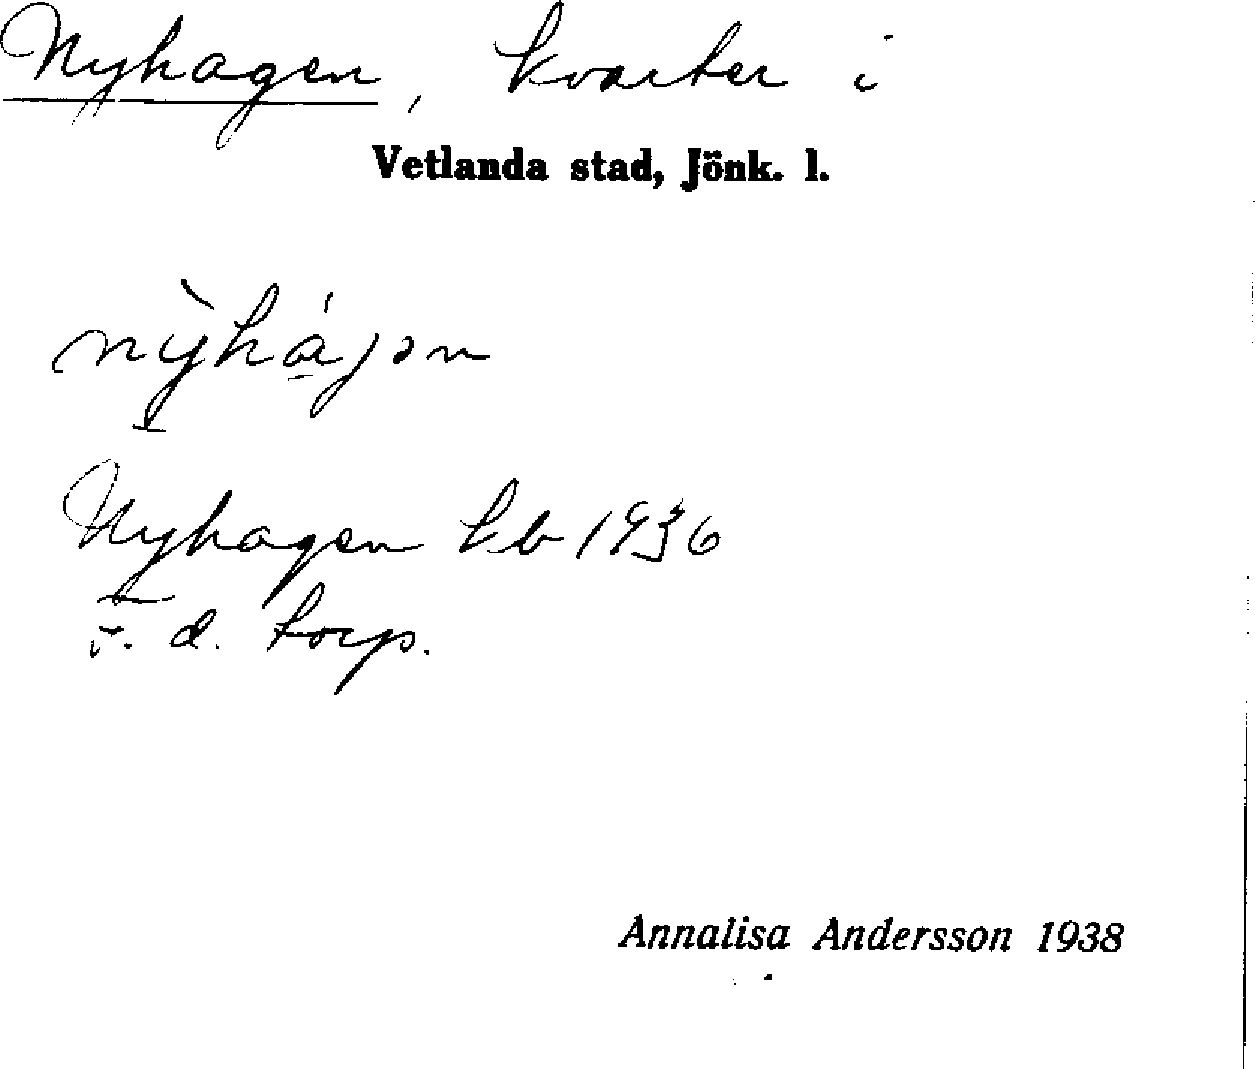 Nyhagen, kvarter i
Vetlanda stad, Jönk. l.
nỳhájən
Nyhagen kb 1936
f. d. torp.
Annalisa Andersson 1938